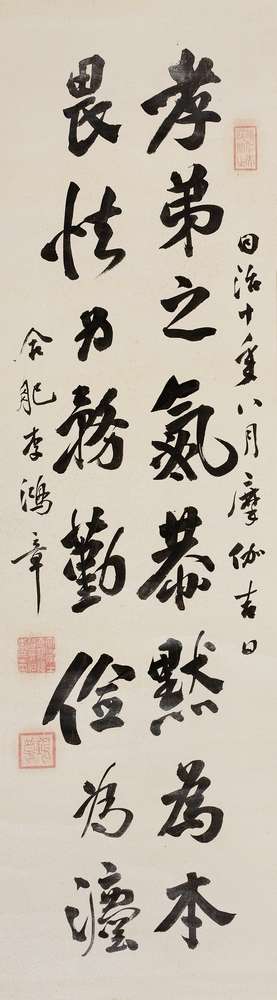 同治十年八月摩伽吉日
孝弟之氣恭默為本
畏怯为務勤儉為灋
合肥李鴻章